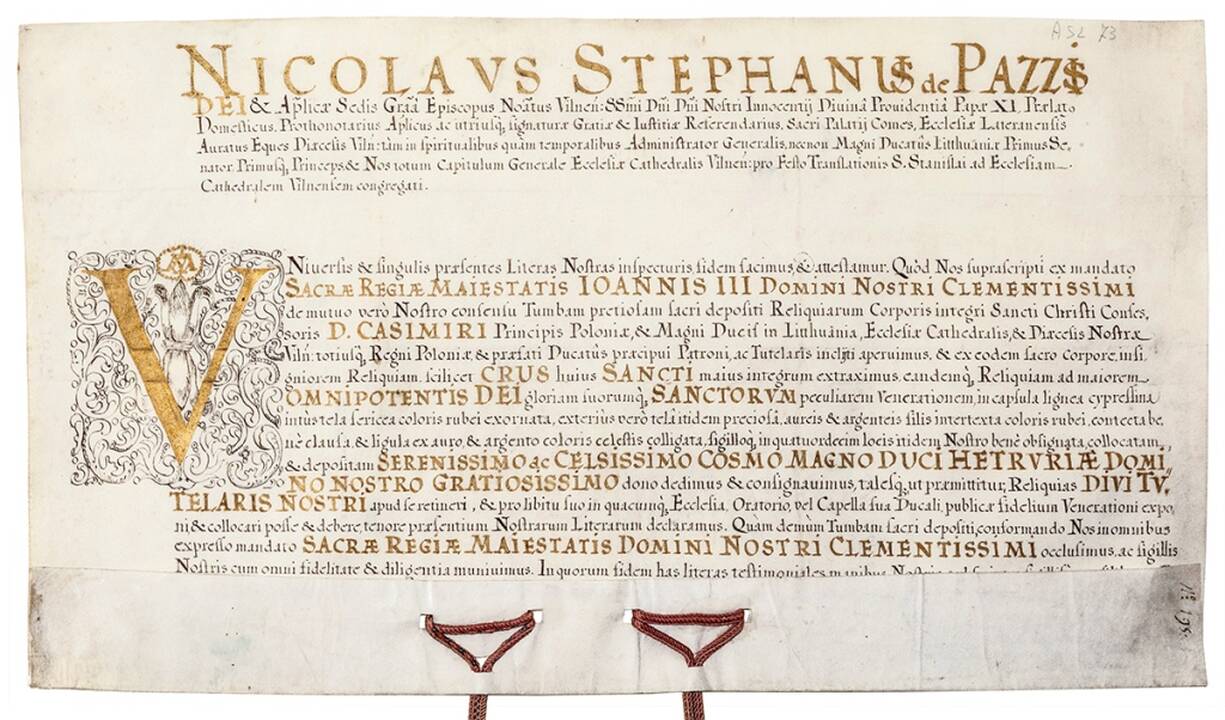 ASL 73
NICOLAVS STEPHANUS de PAZZIS
DEI & Aplicæ Sedis Gratiâ Episcopus Noātus Vilnen: SSmi Dni Dni Nostri Innocentij Divinâ Prouidentiâ Papæ XI. Prælato
Domesticus, Prothonotarius Aplicus ac utriusq, signaturæ Gratiæ & Iustitiæ Referendarius, Sacri Palatij Comes, Ecclesiæ Lateranensis
Auratus Eques Diæcesis Viln: tàm in spiritualibus quàm temporalibus Administrator Generalis, necnon Magni Ducatûs Litthuaniæ Primus Se,
nator Primusq, Princeps & Nos totum Capitulum Generale Ecclesiæ Cathedralis Vilnen: pro Festo Translationis S. Stanislai ad Ecclesiam
Cathedralem Vilnensem congregati.
VNiuersis & singulis præsentes Literas Nostras inspecturis, fidem facimus, & attestamur. Quòd Nos suprascripti ex mandato
SACRÆ REGIÆ MAIESTATIS IOANNIS III DOMINI NOSTRI CLEMENTISSIMI
de mutuo verò Nostro consensu Tumbam pretiosam sacri depositi Reliquiarum Corporis integri Sancti Christi Confes,
soris D. CASIMIRI Principis Poloniæ, & Magni Ducis in Litthuania, Ecclesiæ Cathedralis, & Diæcesis Nostræ
Viln: totiusq, Regni Poloniæ, & præfati Ducatûs præcipui Patroni, ac Tutelaris inclyti aperuimus, & ex eodem sacro Corpore, insi,
gniorem Reliquiam, scilicet CRUS huius SANCTI maius integrum extraximus, eandemq, Reliquiam ad maiorem
OMNIPOTENTIS DEI gloriam suorumq, SANCTORVM peculiarem Venerationem, in capsula lignea cypressina
intùs tela sericea coloris rubei exornata, exteriùs verò telâ itidem preciosâ, aureis & argenteis filis intertexta coloris rubei, contecta be,
nè clausa, & ligula ex auro, & argento coloris celestis colligata, sigilloq, in quatuordecim locis itidem Nostro benè obsignata, collocatam
& depositam SERENISSIMO ac CELSISSIMO COSMO MAGNO DUCI HETRVRIÆ DOMI,
NO NOSTRO GRATIOSISSIMO dono dedimus & consignauimus, talesq, ut præmittitur, Reliquias DIVI TV,
TELARIS NOSTRI apud se retineri, & pro libitu suo in quacunq, Ecclesia, Oratorio, vel Capella sua Ducali, publicæ fidelium Venerationi expo,
ni & collocari posse & debere, tenore præsentium Nostrarum Literarum declaramus. Quàm demùm Tumbam sacri depositi, conformando Nos in omnibus
expresso mandato SACRÆ REGIÆ MAIESTATIS DOMINI NOSTRI CLEMENTISSIMI occlusimus, ac sigillis
Nostris cum omni fidelitate & diligentia muniuimus. In quorum fidem has literas testimoniales manibus Nostris
No 195.